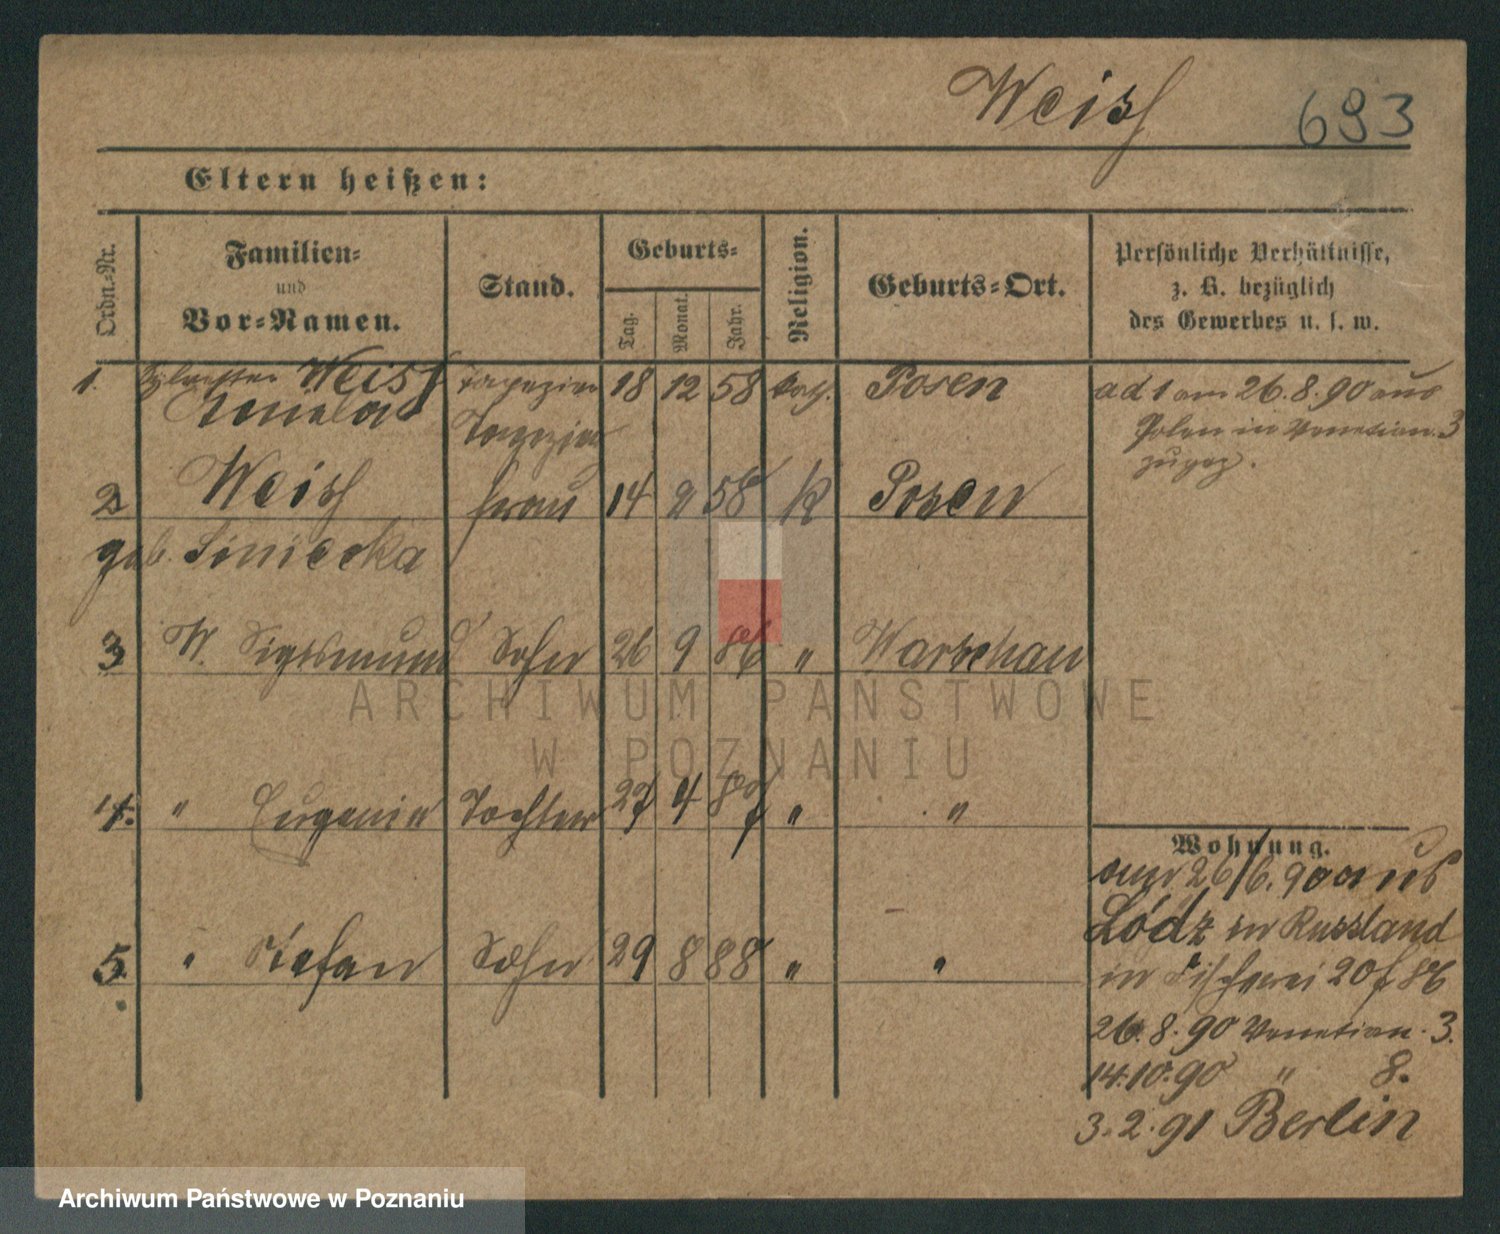 Weiss
693
Eltern heißen:
Ordn.-Nr.
Familien-
und
Vor-Namen.
Stand.
Geburts-
Tag.
Monat.
Jahr.
Religion.
Geburts-Ort.
Persönliche Verhältnisse,
z. B. bezüglich
des Gewerbes u. s. w.
1. Sylvester Weiss Tapezier 18 12 58 kath. Posen
ad 1 am 26.8.90 aus
Polen in Venetian. 3
zugez.
Tapezier
2 Weiss frau 14 2 58 k Posen
geb. Siniecka
3 W. Sigismund Sohn 26 9 86 " Warschau
4. " Eugenie Tochter 27 4 87 " "
5. " Stefan Sohn 29 8 88 " "
Wohnung.
am 26/6. 90 aus
Lódz in Russland
in Fischerei 20 f 86
26.8.90 Venetian. 3.
14.10.90 " 8.
3.2.91 Berlin
ARCHIWUM PAŃSTWOWE
W POZNANIU
Archiwum Państwowe w Poznaniu